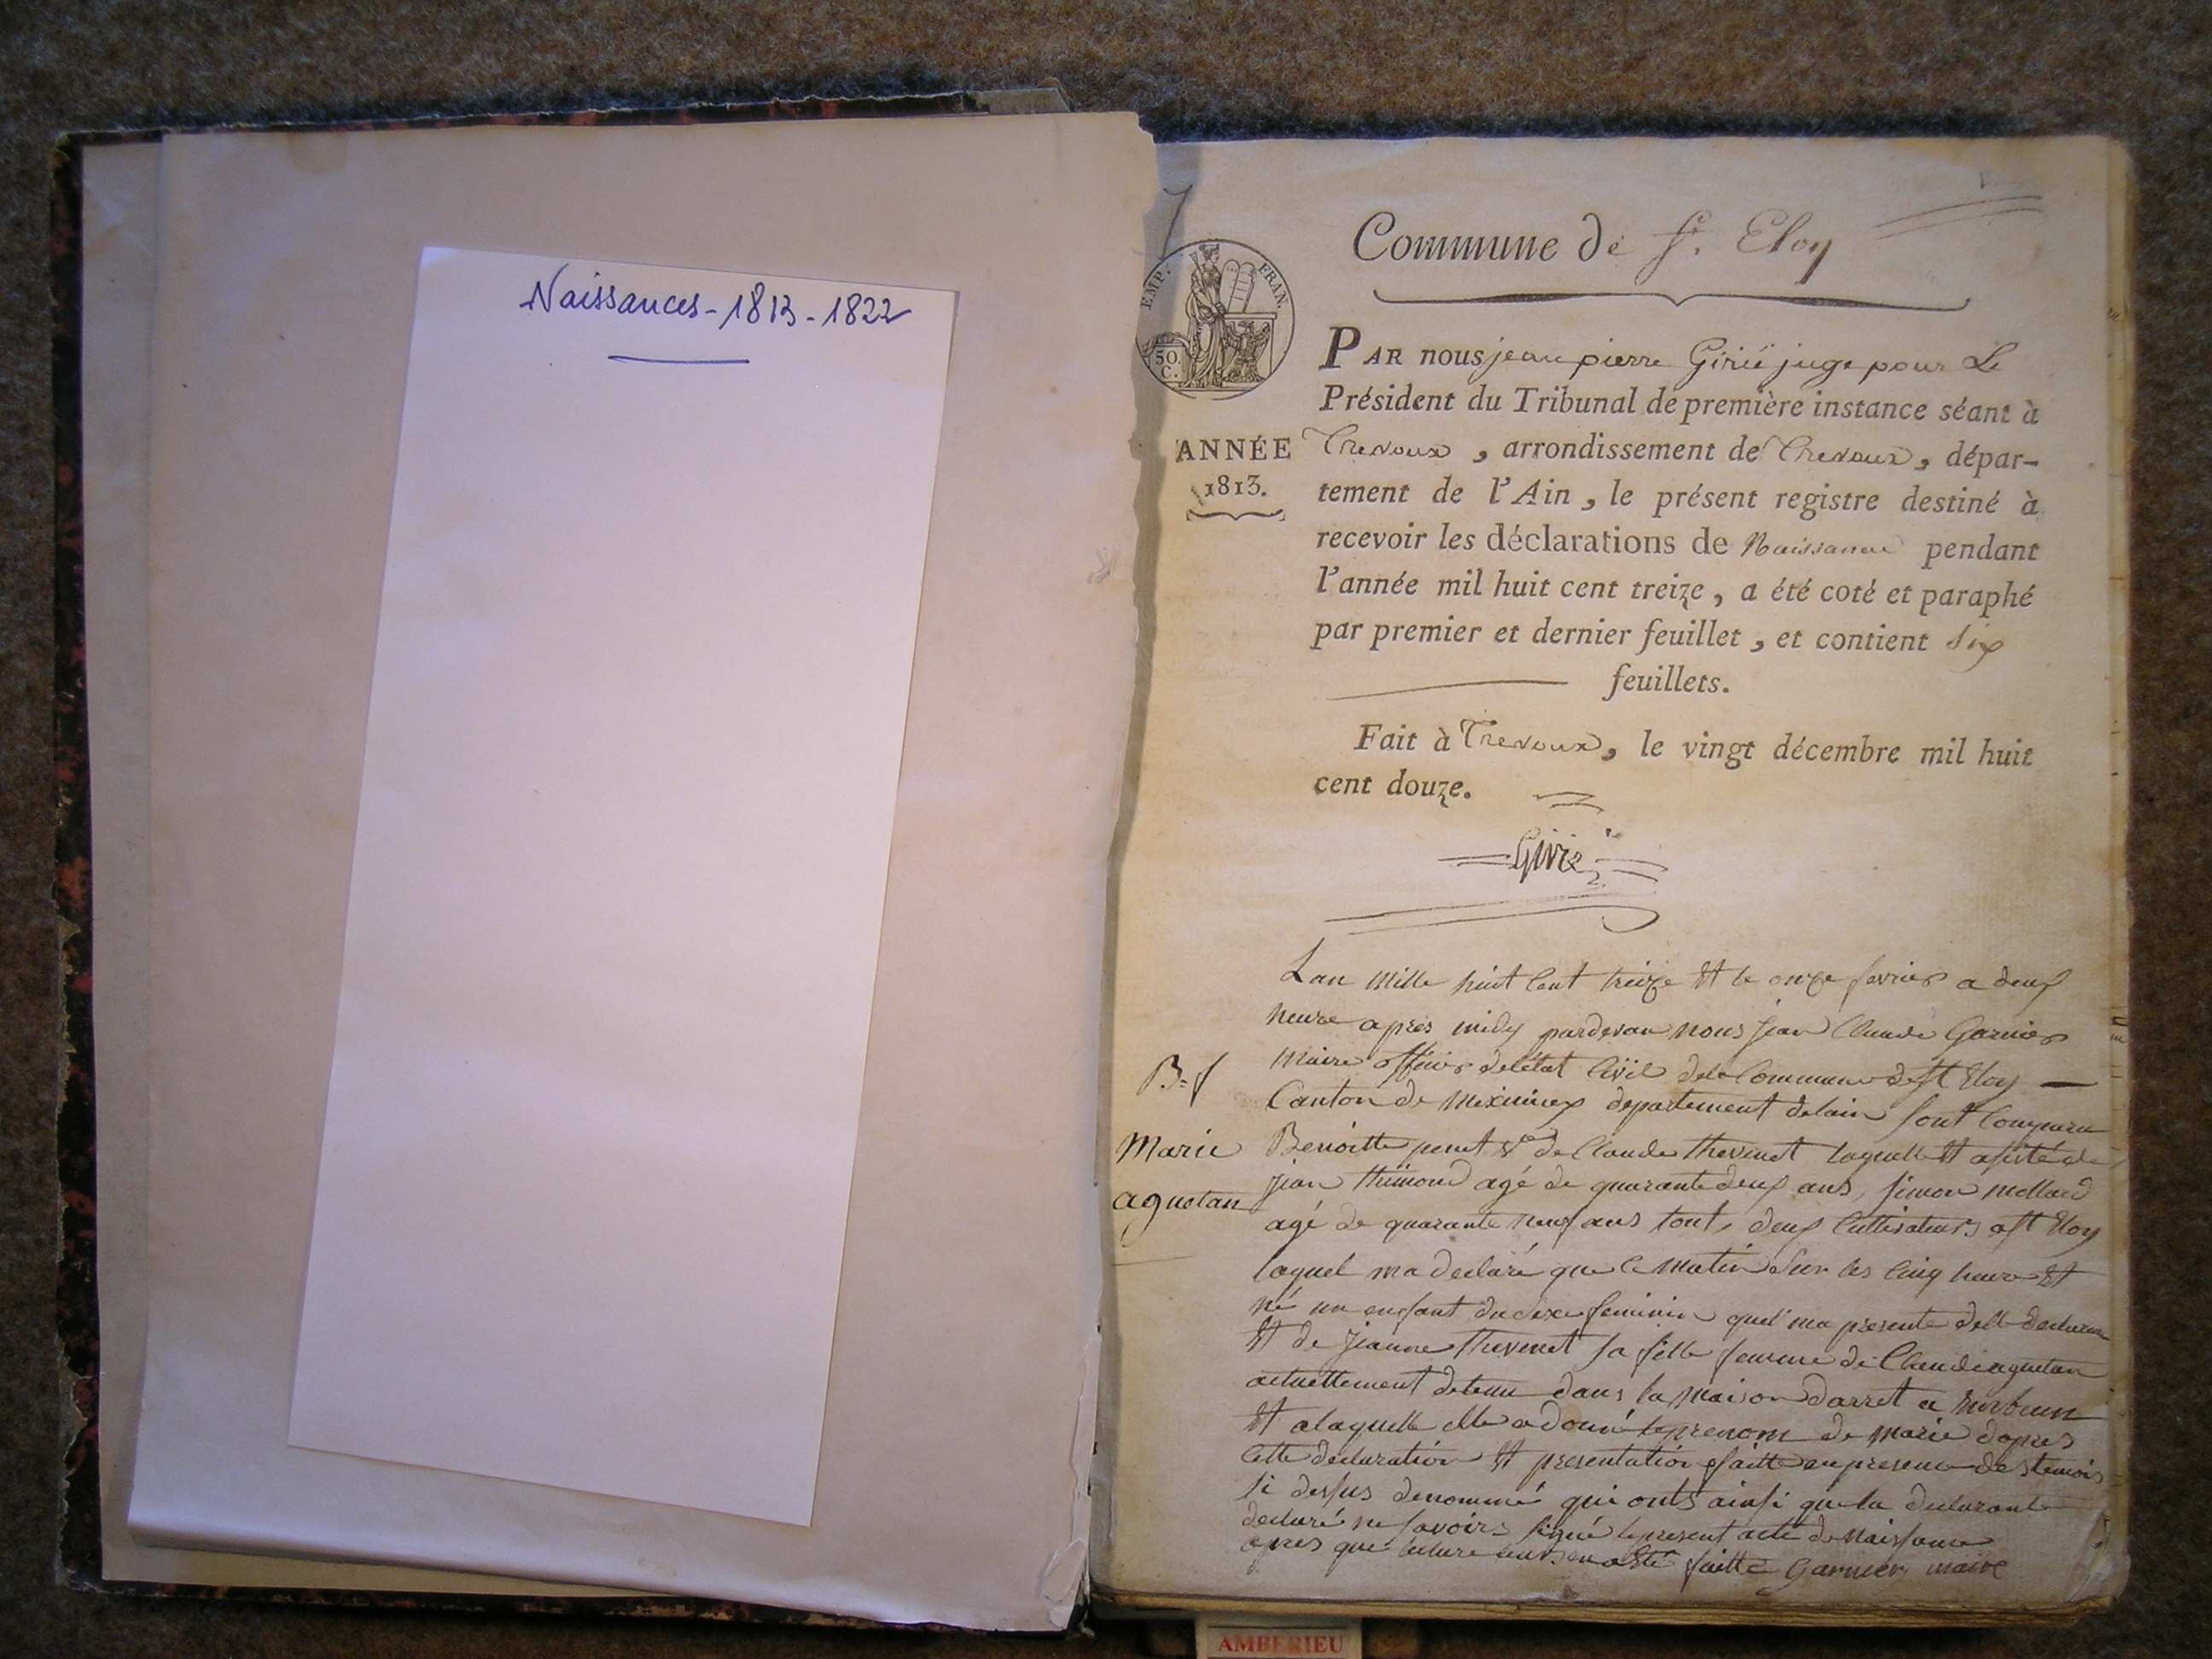 Naissances - 1813 - 1822
Commune de St. Eloy
EMP. FRAN.
50.
C.
PAR nous jean pierre juge pour Le
Président du Tribunal de première instance séant à
ANNÉE
1813.
Trevoux, arrondissement de Trevoux, dépar-
tement de l'Ain, le présent registre destiné à
recevoir les déclarations de Naissance pendant
l'année mil huit cent treize, a été coté et paraphé
par premier et dernier feuillet, et contient six
feuillets.
Fait à Trevoux, le vingt décembre mil huit
cent douze.
Lan mille huit Cent treize Et le onze fevrier a deux
heure apres midy pardevan nous jean Claude Garnier
Maire officier deletat Civil dela Commune de St Eloy
Canton de Meximieux departement delain sont Comparu
B. f
Marie
aguetan
Benoitte penet Ve de Claude thevenet laquelle Et asisté de
jean thimond agé de quarante deux ans, simon mollard
agé de quarante neuf ans tout, deux Cultivateurs a St Eloy
laquel ma declaré que ce matin sur les cinq heure Et
né un enfant du sexe feminin quel ma presente delle declarante
Et de jeanne thevenet sa fille femme de Claude aguetan
actuellement detenu dans la maison darret a
Et alaquelle elle a donné le prenom de marie dapres
Cette declaration Et presentation faitte en presence des temois
si dessus denommé qui onts ainsi que la declarante
declaré ne savoirs signé le present acte de naissance
apres que lecture leurs en a Eté faitte Garnier maire
AMBERIEU